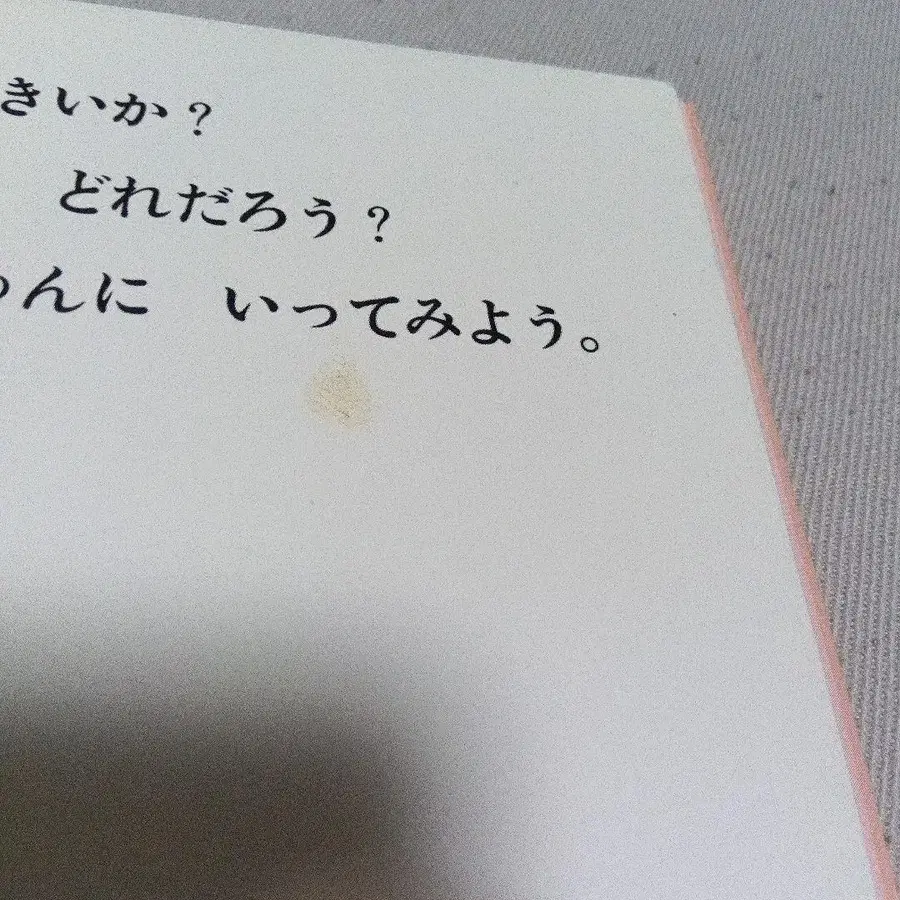 きいか？
どれだろう？
んに　いってみよう。